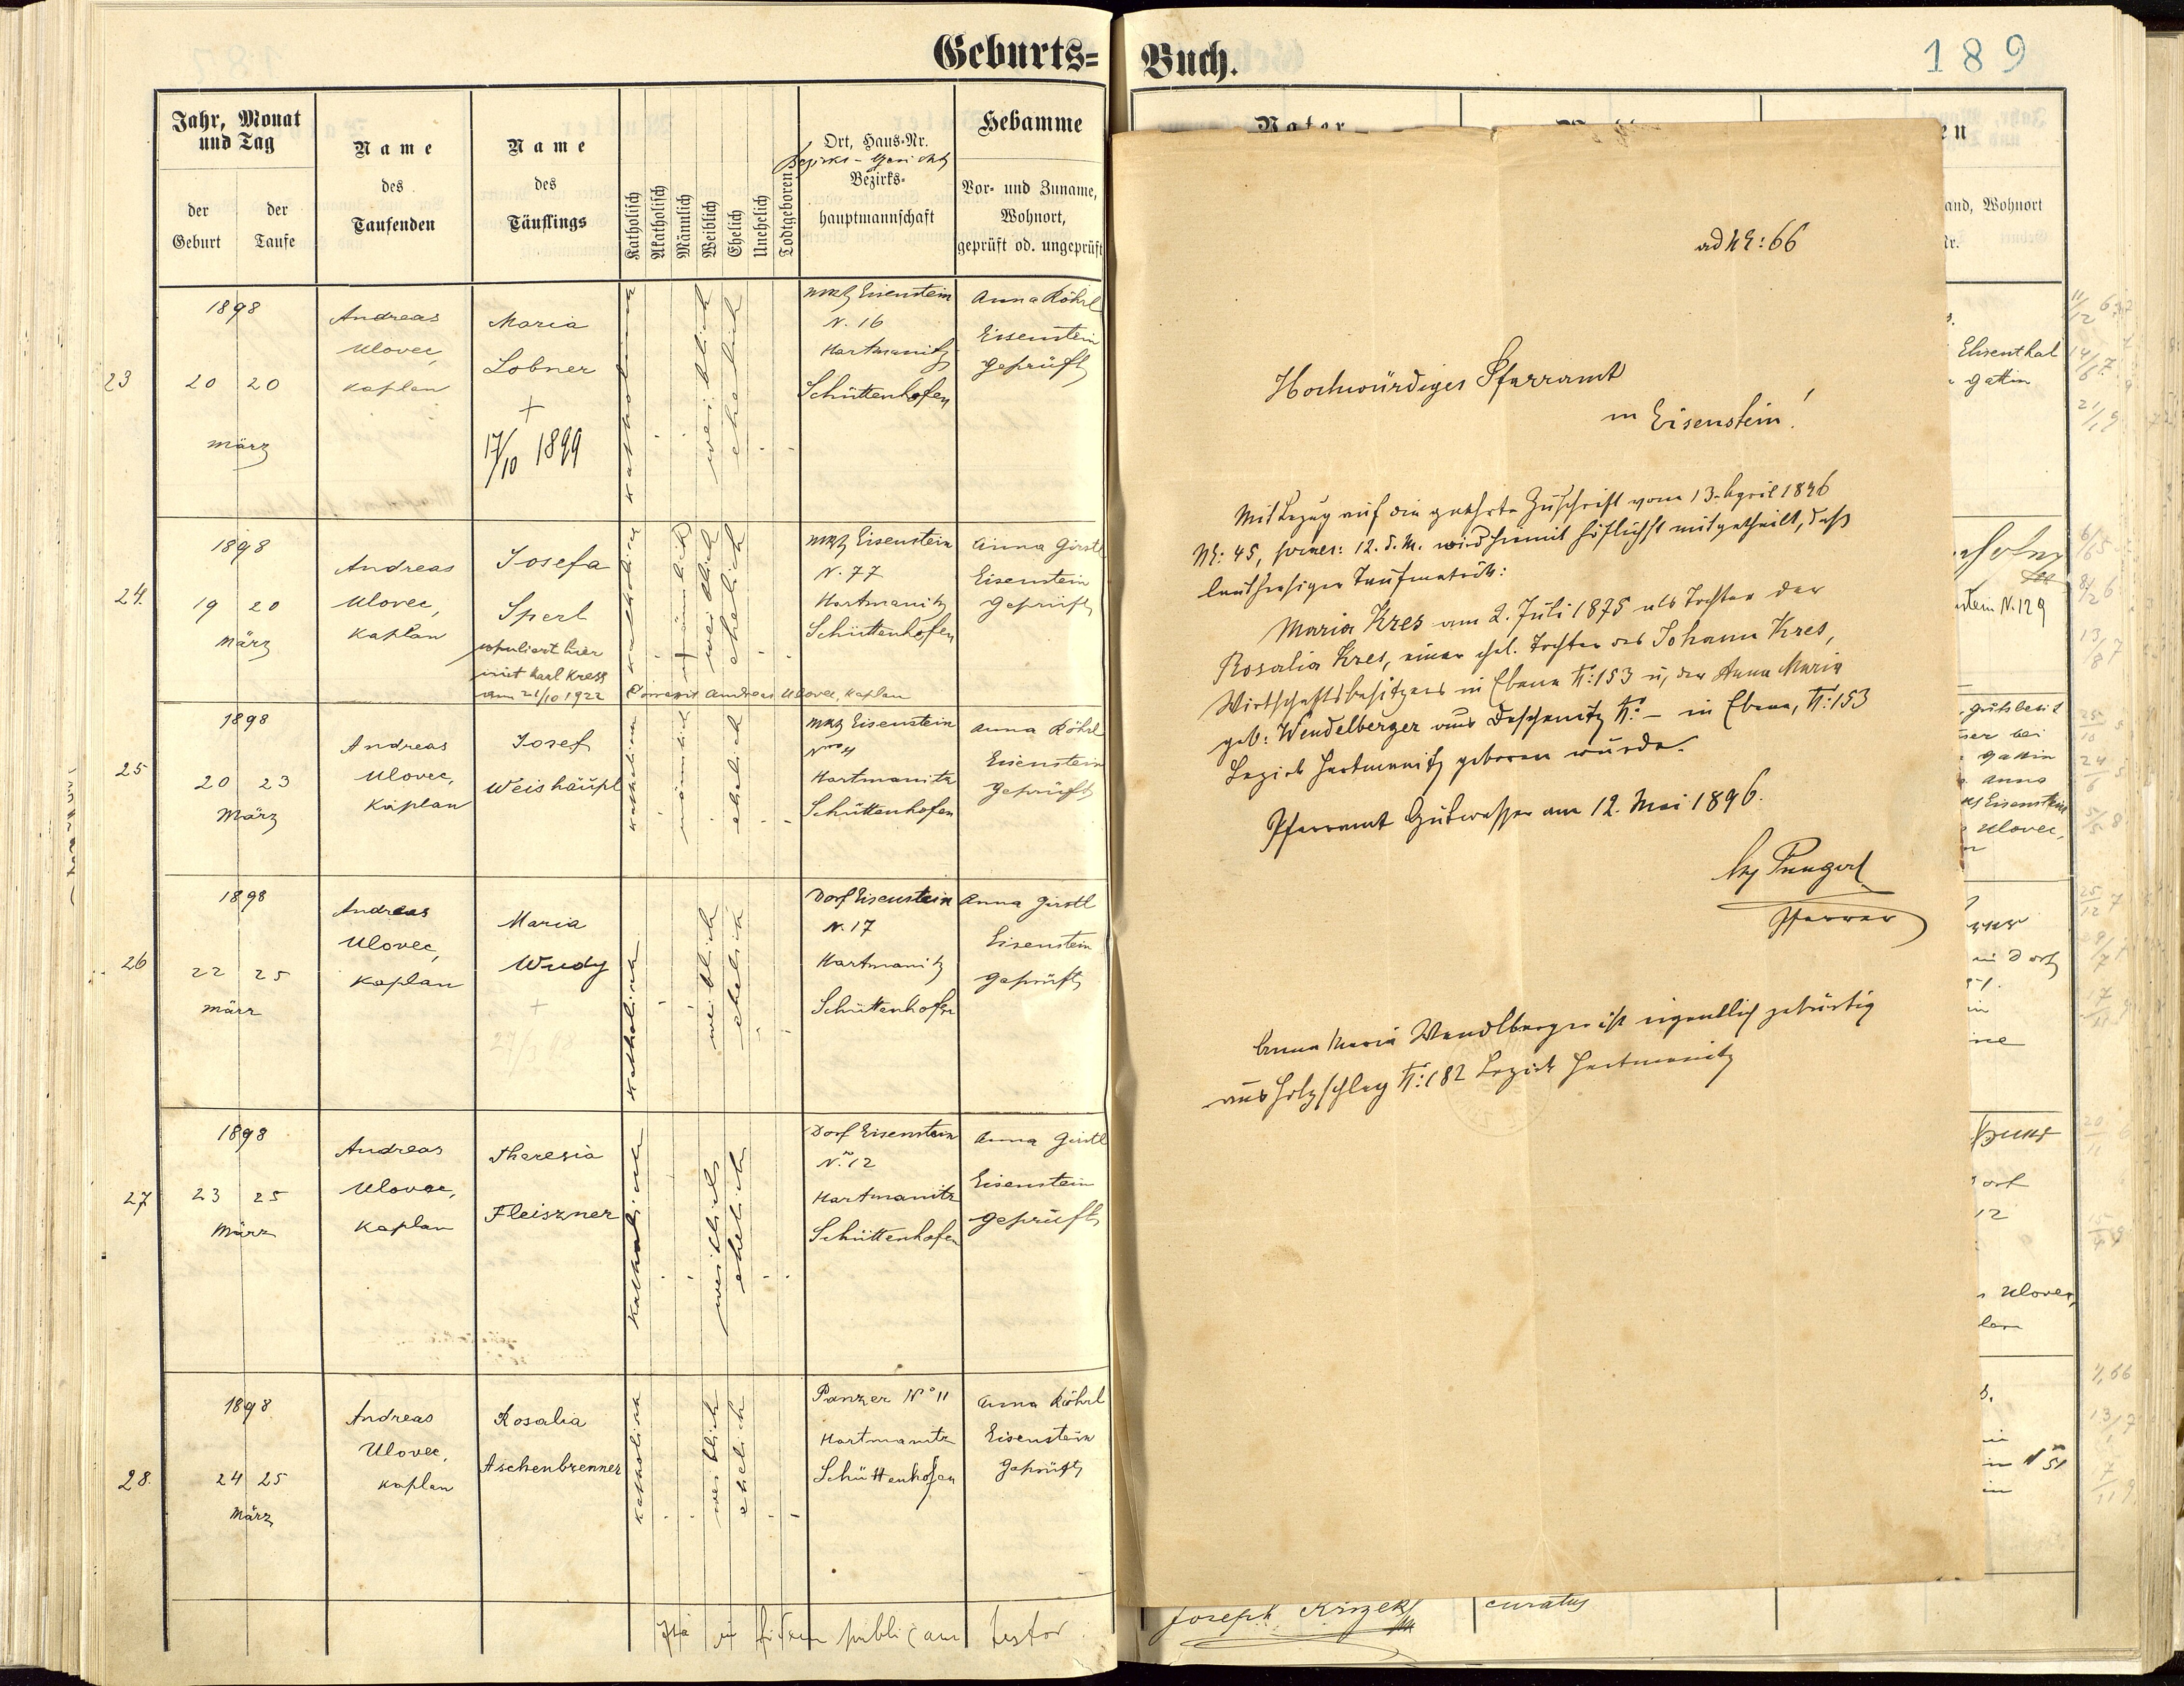 Geburts=
Jahr, Monat
und Tag
der
Geburt
der
Taufe
Name
des
Taufenden
Name
des
Täuflings
Katholisch
Akatholisch
Männlich
Weiblich
Ehelich
Unehelich
Todtgeboren
Ort, Haus-Nr.
Bezirks-Gericht
Bezirks-
hauptmannschaft
Hebamme
Vor- und Zuname,
Wohnort,
geprüft od. ungeprüft
23
1898
20 20
März
Andreas
Ulovec,
Kaplan
Maria
Lobner
+
17/10 1899
katholisch
weiblich
ehelich
Markt Eisenstein
N. 16
Hartmanitz
Schüttenhofen
Anna Röhrl
Eisenstein
geprüft
24.
1898
19 20
März
Andreas
Ulovec,
Kaplan
Josefa
Sperl
copuliert hier
mit Karl Kress
am 21/10 1922
katholisch
männlich
weiblich
ehelich
Correxit Andreas Ulovec, Kaplan
Markt Eisenstein
N. 77
Hartmanitz
Schüttenhofen
Anna Girstl
Eisenstein
geprüft
25
1898
20 23
März
Andreas
Ulovec,
Kaplan
Josef
Weishäupl
katholisch
männlich
ehelich
Markt Eisenstein
Hartmanitz
Schüttenhofen
Anna Röhrl
Eisenstein
geprüft
26
1898
22 25
März
Andreas
Ulovec,
Kaplan
Maria
Wudy
+
27/3 98
katholisch
weiblich
ehelich
Dorf Eisenstein
N. 17
Hartmanitz
Schüttenhofen
Anna Girstl
Eisenstein
geprüft
27
1898
23 25
März
Andreas
Ulovec,
Kaplan
Theresia
Fleiszner
katholisch
weiblich
ehelich
Dorf Eisenstein
N. 12
Hartmanitz
Schüttenhofen
Anna Girstl
Eisenstein
geprüft
28.
1898
24 25
März
Andreas
Ulovec,
Kaplan
Rosalia
Aschenbrenner
katholisch
weiblich
ehelich
Panzer N° 11
Hartmanitz
Schüttenhofen
Anna Röhrl
Eisenstein
geprüft
Ita in fidem publicam testor.
Buch.
189
Vater
ad NE: 66
Hochwürdiges Pfarramt
in Eisenstein!
Mit Bezug auf die geehrte Zuschrift vom 13. April 1896
NE: 45, praes: 12. d. M. wird hiemit höflichst mitgetheilt, daß
laut hiesiger Taufmatrik:
Maria Kres am 2. Juli 1875 als Tochter der
Rosalia Kres, einer ehel. Tochter des Johann Kres,
Wirtschaftsbesitzers in Ebene N: 153 u, der Anna Maria
geb: Wendelberger aus Deschenitz N: – in Ebene, N: 153
Bezirk Hartmanitz geboren wurde.
Pfarramt Gutwasser am 12. Mai 1896.
Pfarrer
Anna Maria Wendlberger ist eigentlich gebürtig
aus Holzschlag N: 182 Bezirk Hartmanitz
and, Wohnort
Elisenthal
Gattin
N. 129
bei
Gattin
Anna
Eisenstein
Ulovec,
in Dorf
12
Ulovec,
N 51
Joseph Krizek
curatus